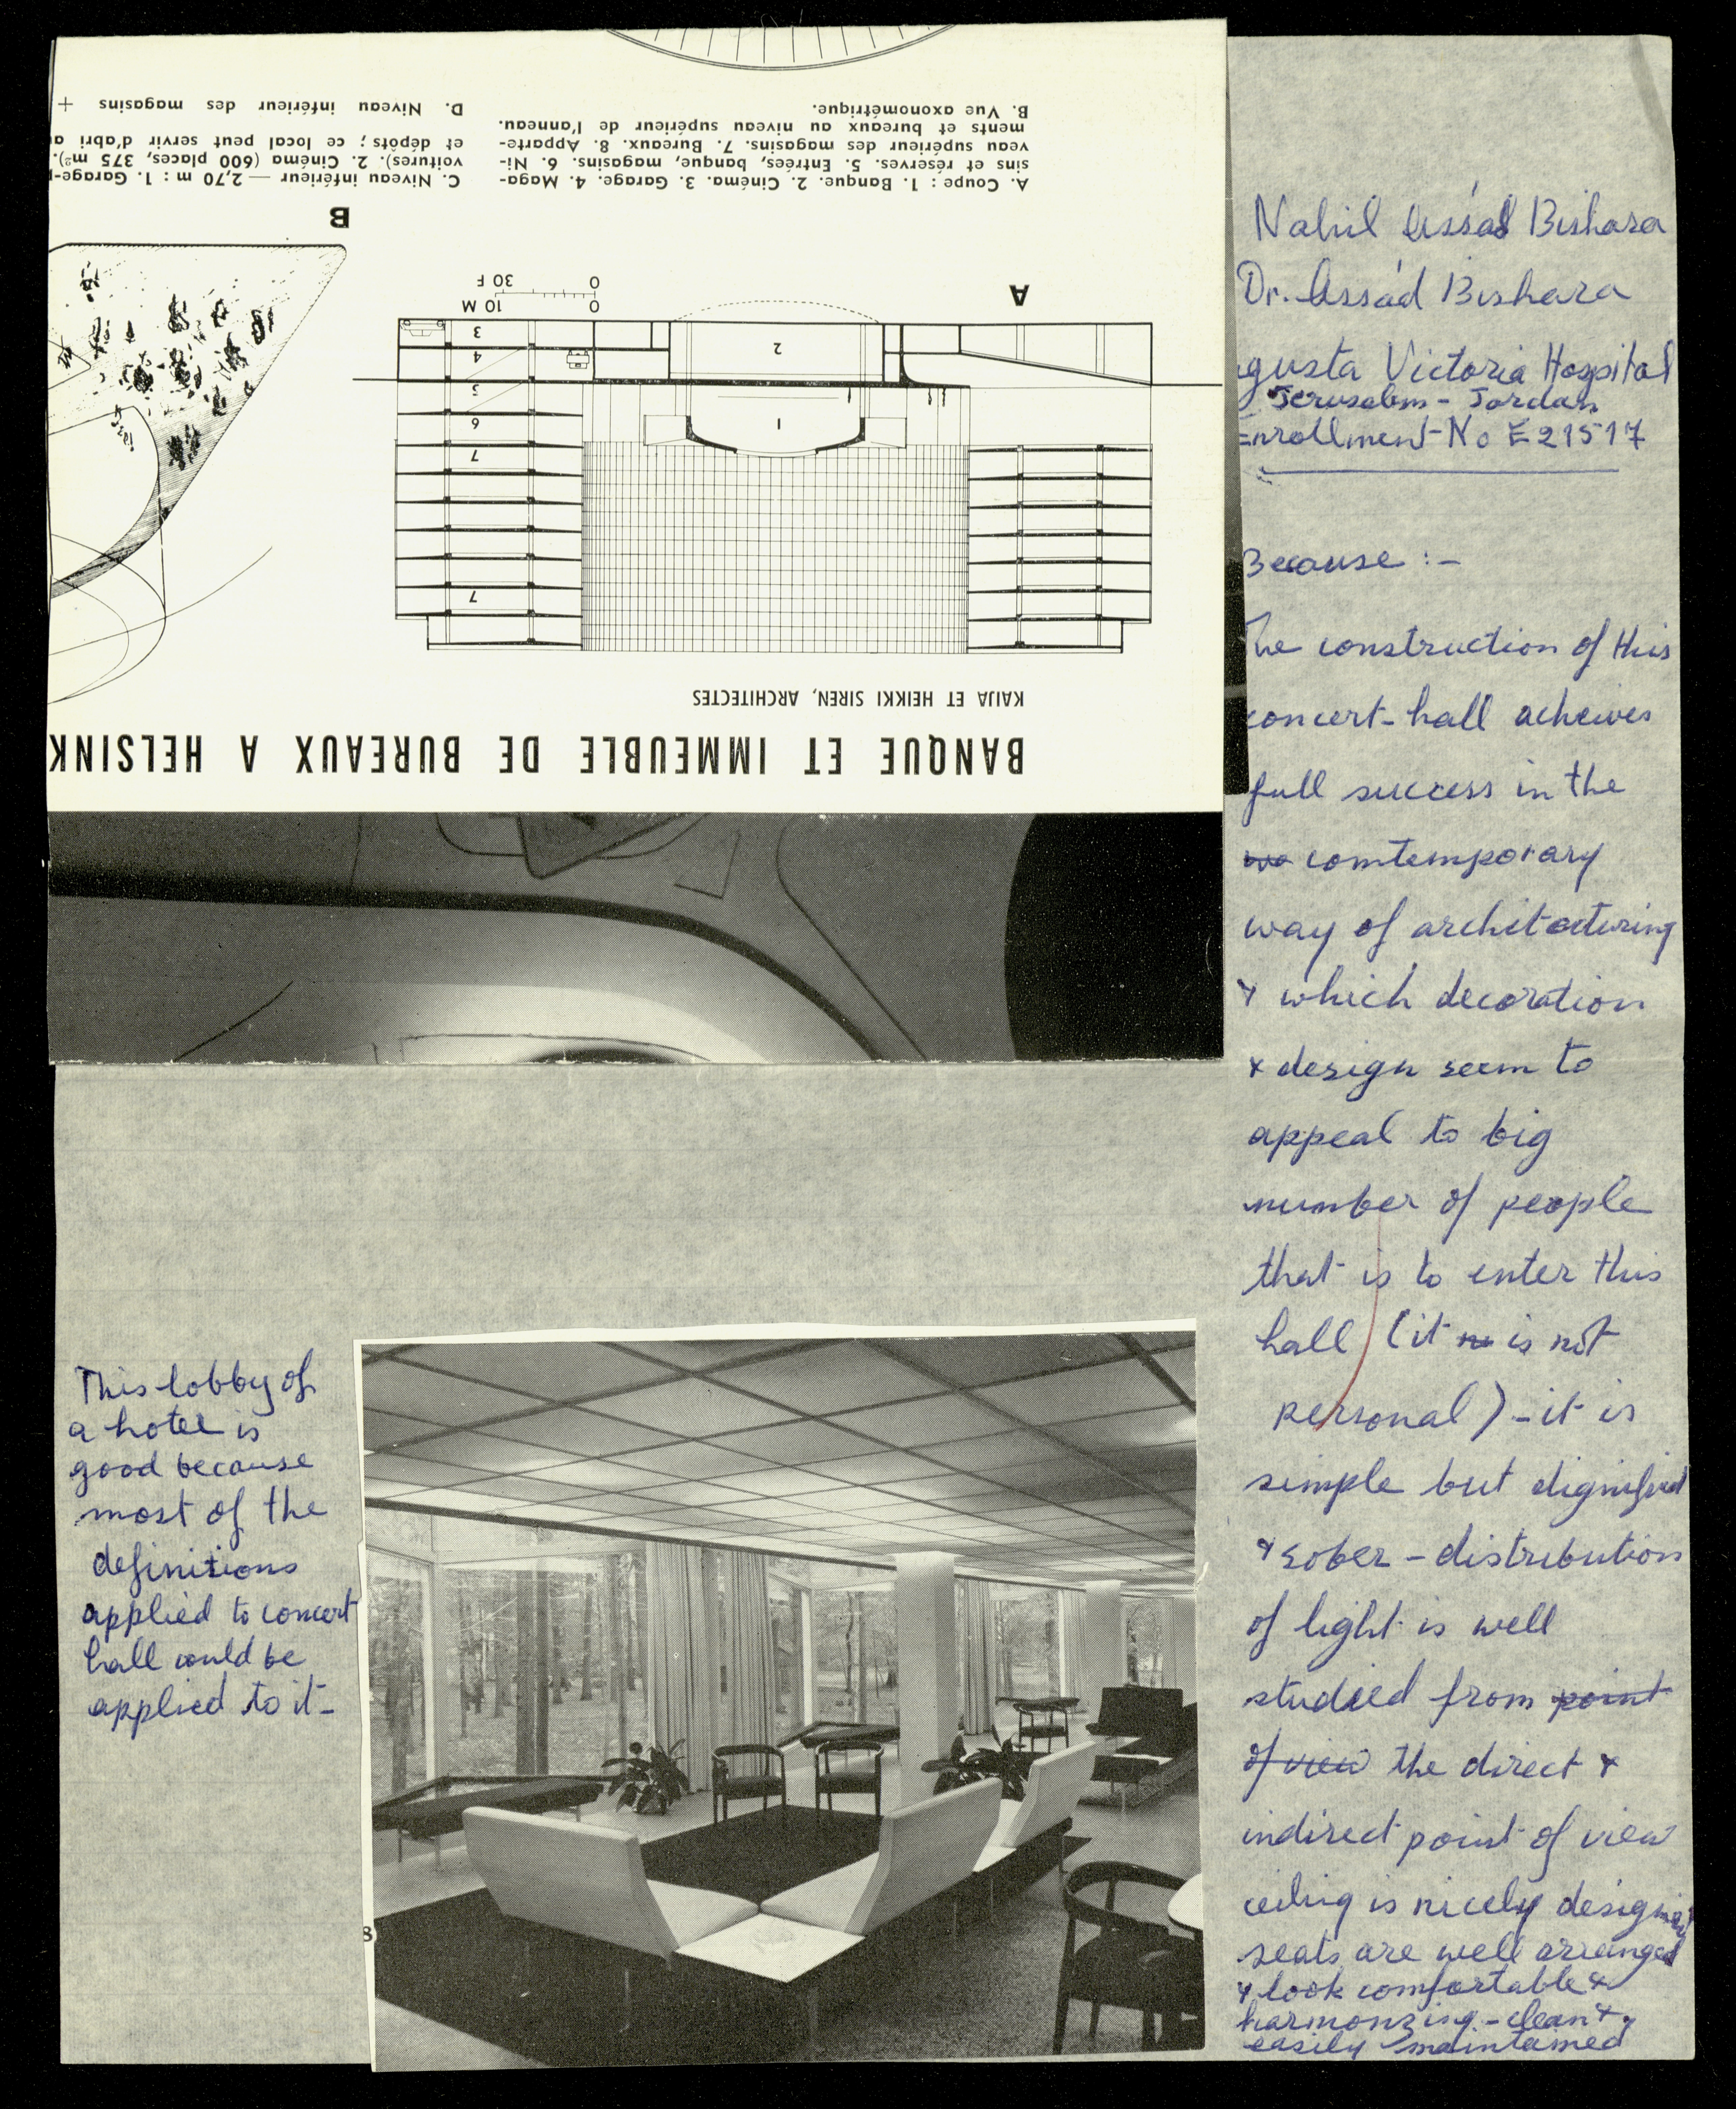 BANQUE ET IMMEUBLE DE BUREAUX A HELSINK
KAIJA ET HEIKKI SIREN, ARCHITECTES
7
7
6
5
4
3
1
2
0 10 M
0 30 F
A
B
A. Coupe : 1. Banque. 2. Cinéma. 3. Garage. 4. Maga-
sins et réserves. 5. Entrées, banque, magasins. 6. Ni-
veau supérieur des magasins. 7. Bureaux. 8. Apparte-
ments et bureaux au niveau supérieur de l'anneau.
B. Vue axonométrique.
C. Niveau inférieur — 2,70 m : 1. Garage-
voitures). 2. Cinéma (600 places, 375 m²).
et dépôts ; ce local peut servir d'abri
D. Niveau inférieur des magasins +
Nahil Assád Bishara
Dr. Assád Bishara
gusta Victoria Hospital
Jerusalem - Jordan
Enrollment-No E21517
Because :-
The construction of this
concert-hall acheives
full success in the
comtemporary
way of architecturing
& which decoration
& design seem to
appeal to big
number of people
that is to enter this
hall (it is not
personal) - it is
simple but dignified
& sober - distribution
of light is well
studied from point
of view the direct &
indirect point of view
ceiling is nicely designed
seats are well arranged
& look comfortable &
harmonzing - clean &
easily maintained
This lobby of
a hotel is
good because
most of the
definitions
applied to concert
hall could be
applied to it-
8